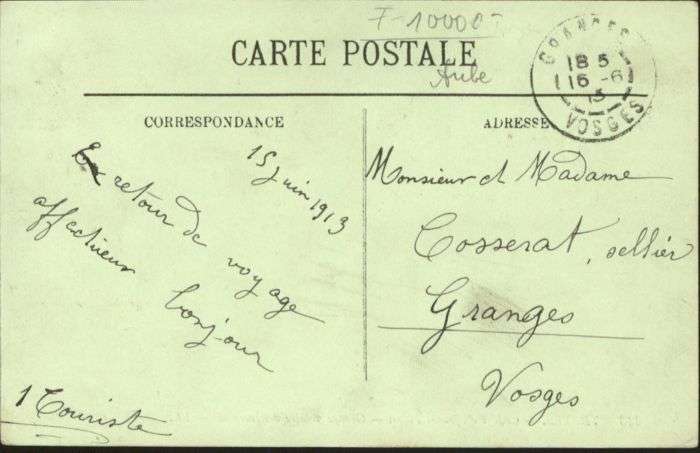 F-10000
Aube
CARTE POSTALE
GRANGES
18 5
16 -6
13
VOSGES
CORRESPONDANCE
ADRESSE
15 juin 1913
retour de voyage
affectueux bonjour
1 Touriste
Monsieur et Madame
Cosserat, sellier
Granges
Vosges